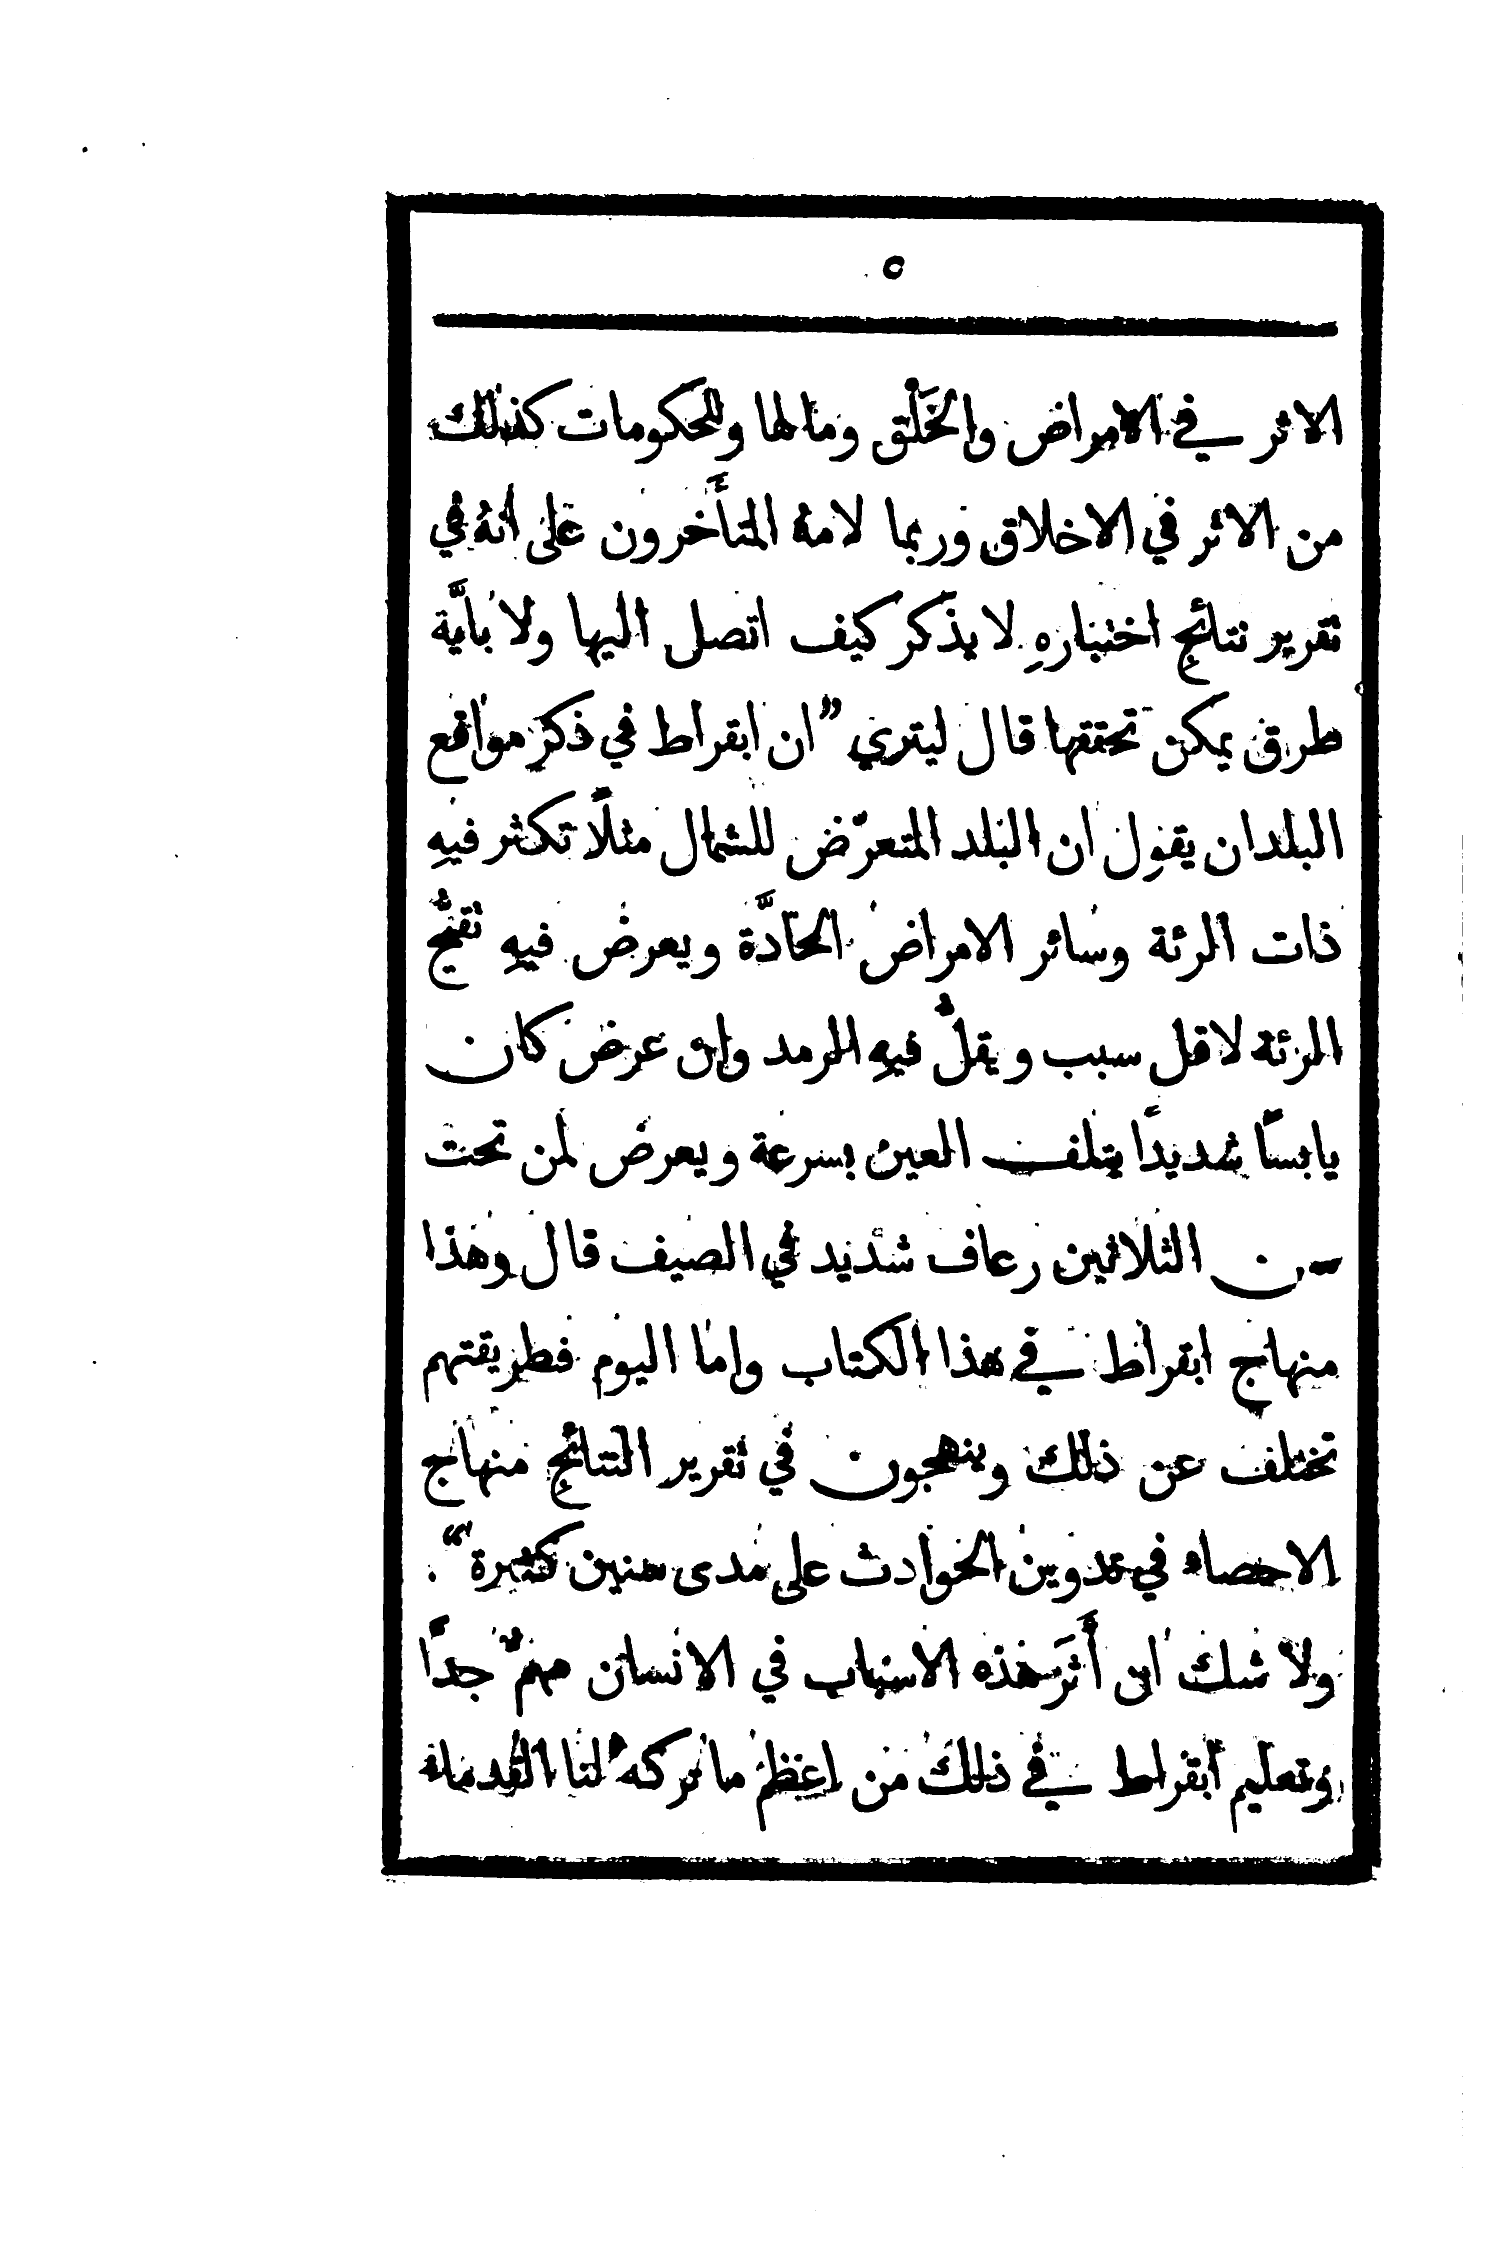 ٥
الاثر في الامراض والخَلْق وما لها وللحكومات كذلك
من الاثر في الاخلاق وربما لامهُ المتأَخرون على انهُ في
تقرير نتائجِ اختبارهِ لا يذكر كيف اتصل اليها ولا بايَّة
طرق يمكن تحققها قال ليتري ”ان ابقراط في ذكر مواقع
البلدان يقول ان البلد المتعرّض للشمال مثلًا تكثر فيهِ
ذات الرئة وسائر الامراض الحادَّة ويعرض فيهِ تقيُّح
الرئة لاقل سبب ويقلُّ فيهِ الرمد وان عرض كان
يابسًا شديدًا يتلف العين بسرعة ويعرض لمن تحت
سن الثلاثين رعاف شديد في الصيف قال وهذا
منهاج ابقراط في هذا الكتاب واما اليوم فطريقتهم
تختلف عن ذلك وينهجون في تقرير النتائجِ منهاج
الاحصاء في تدوين الحوادث على مدى سنين كثيرة“.
ولا شك ان أَثرَ هذه الاسباب في الانسان مهمٌّ جدًّا
وتعليم ابقراط في ذلك من اعظم ما تركهُ لنا القدماء